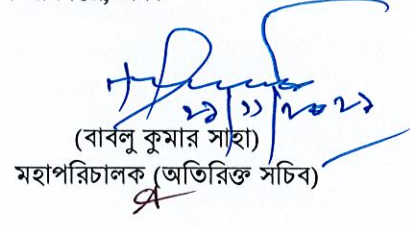 ২১/১১/২০২১
(বাবলু কুমার সাহা)
মহাপরিচালক (অতিরিক্ত সচিব)